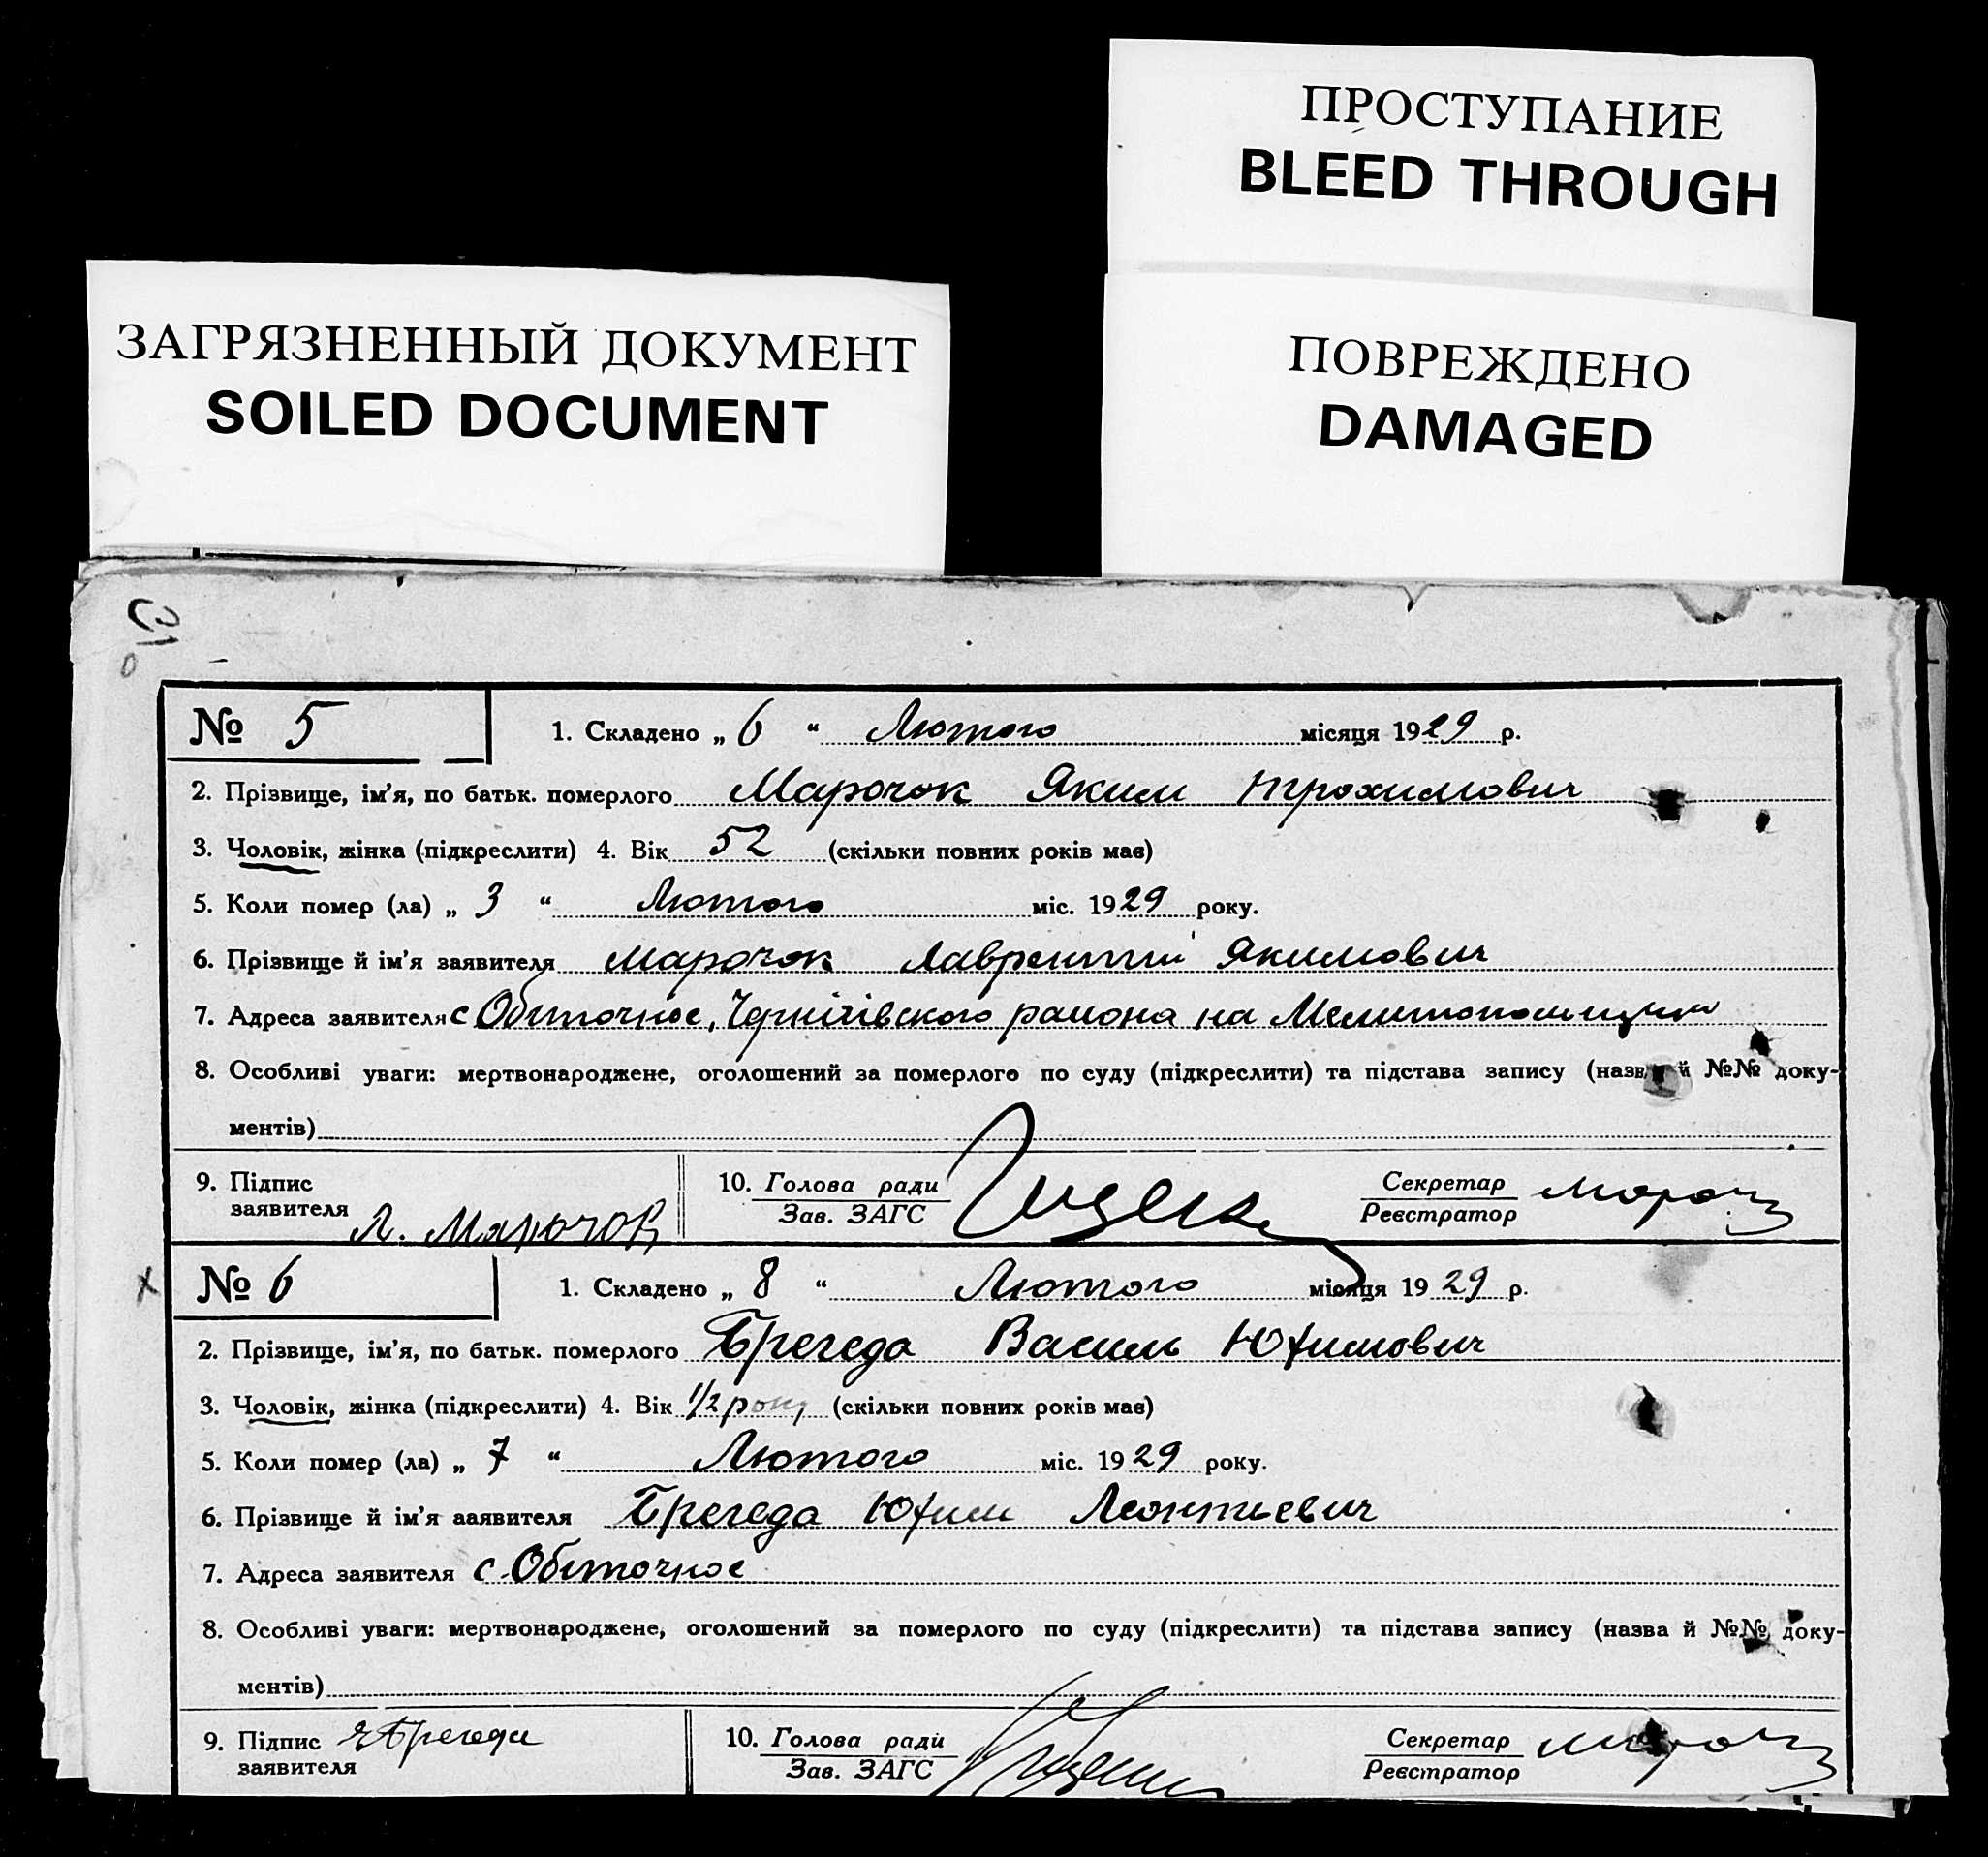 ПРОСТУПАНИЕ
BLEED THROUGH
ЗАГРЯЗНЕННЫЙ ДОКУМЕНТ
SOILED DOCUMENT
ПОВРЕЖДЕНО
DAMAGED
№ 5 1. Складено „ 6 “ Лютого місяця 1929 р.
2. Прізвище, ім'я, по батьк. померлого Марочок Яким Трохимович
3. Чоловік, жінка (підкреслити) 4. Вік 52 (скільки повних років має)
5. Коли помер (ла) „ 3 “ Лютого міс. 1929 року.
6. Прізвище й ім'я заявителя Марочок Лаврентий Якимович
7. Адреса заявителя с Обиточное, Чернігівского района на Мелитопольщини
8. Особливі уваги: мертвонароджене, оголошений за померлого по суду (підкреслити) та підстава запису (назва й №№ доку-
ментів)
9. Підпис заявителя Л. Марочок 10. Голова ради Зав. ЗАГС Секретар Реєстратор
№ 6 1. Складено „ 8 “ Лютого місяця 1929 р.
2. Прізвище, ім'я, по батьк. померлого Брегеда Василь Юхимович
3. Чоловік, жінка (підкреслити) 4. Вік 1/2 року (скільки повних років має)
5. Коли помер (ла) „ 7 “ Лютого міс. 1929 року.
6. Прізвище й ім'я заявителя Брегеда Юхим Леонтьевич
7. Адреса заявителя с. Обиточное
8. Особливі уваги: мертвонароджене, оголошений за померлого по суду (підкреслити) та підстава запису (назва й №№ доку-
ментів)
9. Підпис заявителя Брегеда 10. Голова ради Зав. ЗАГС Секретар Реєстратор